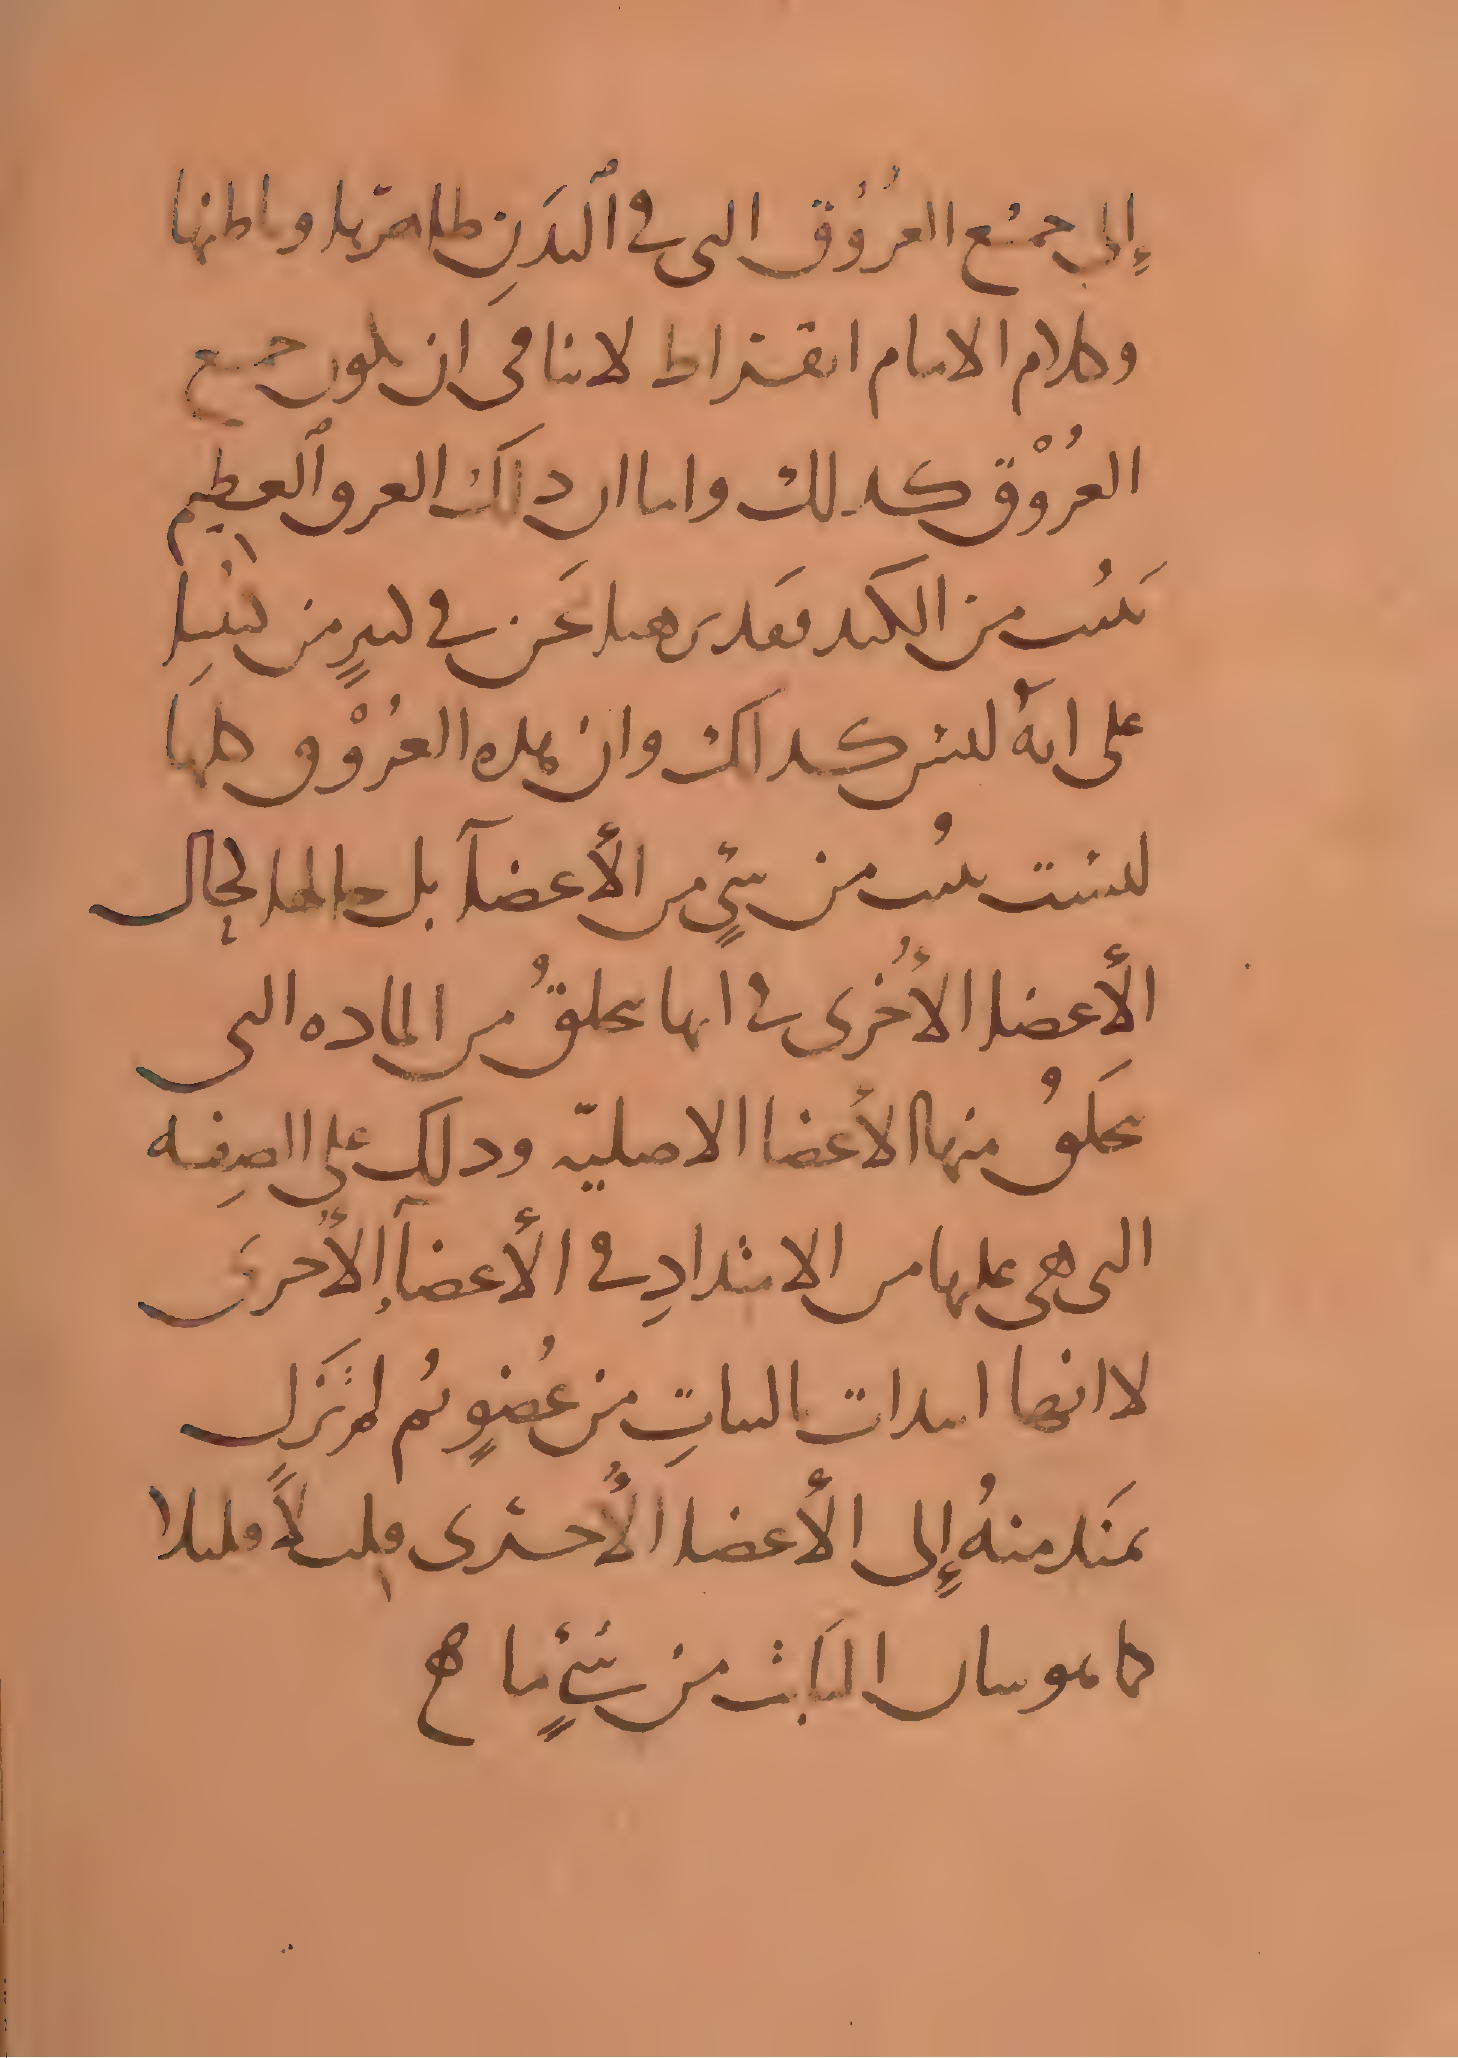 إلى جميع العُرُوق التى في ٱلبَدَنِ ظاهرها وباطنها
وكلام الامام ابقراط لا ينافى ان يكون جميع
العُرُوْق كذلك واما ان ذلك العرق ٱلعظيم
ينبُت من الكبد فقد برهنا نحن في كثيرٍ من كتبنا
على انهُ ليس كذلك وان هذه العُرُوْق كلها
ليست تنبُت من شيٍء من الأعضآ بل حالها كحال
الأعضا الأُخرى في انها تتخلقُ من الماده التى
تتخَلقُ منها الأعضا الاصليّه وذلك على الصِفه
التى هي عليها من الامتدادِ في الأعضآءِ الأُخرى
لا انها ابتدات بالنباتِ من عُضوٍ ثُم لم تَزَل
تمتَد منهُ إلى الأعضا الأُخرى قليلاً قليلا
كما هو شان النَابت من شيٍء ما